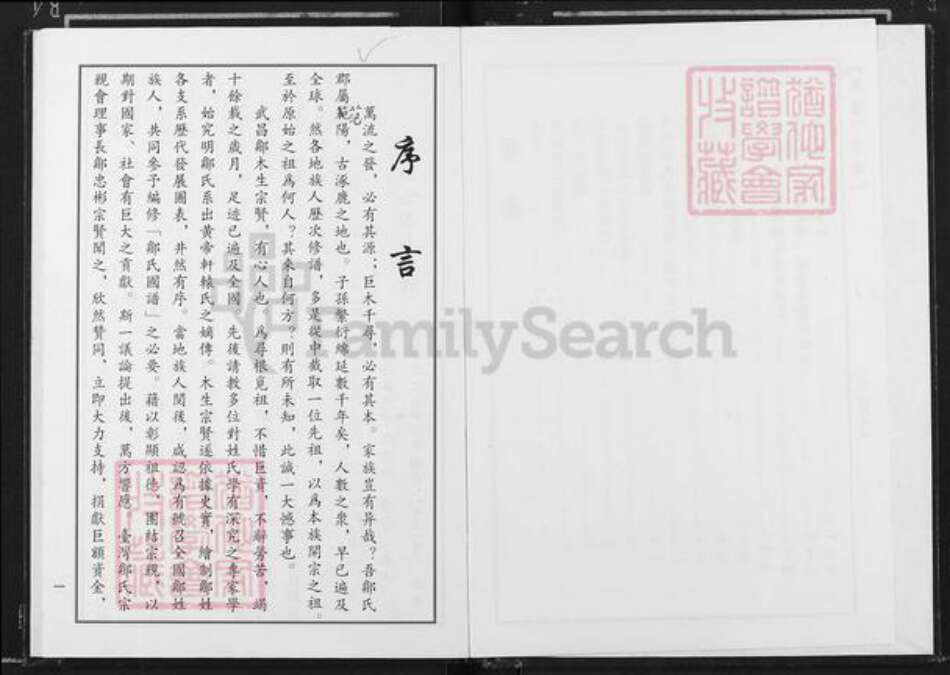 序言
萬流之發，必有其源；巨木千尋，必有其本。家族豈有异哉？吾鄒氏
郡屬範陽，古涿鹿之地也。子孫繁衍綿延數千年矣，人數之衆，早已遍及
范
全球。然各地族人歷次修譜，多是從中截取一位先祖，以爲本族開宗之祖。
至於原始之祖爲何人？其來自何方？則有所未知，此誠一大憾事也。
武昌鄒木生宗賢，有心人也，爲尋根覓祖，不惜巨資，不辭勞苦，竭
十餘載之歲月，足迹已遍及全國，先後請教多位對姓氏學有深究之專家學
者，始究明鄒氏系出黃帝軒轅氏之嫡傳。木生宗賢遂依據史實，繪制鄒姓
各支系歷代發展圖表，井然有序。當地族人閱後，咸認爲有號召全國鄒姓
族人，共同參予編修「鄒氏國譜」之必要。藉以彰顯祖德，團結宗親，以
期對國家、社會有巨大之貢獻。斯一議論提出後，萬方響應。臺灣鄒氏宗
親會理事長鄒忠彬宗賢聞之，欣然贊同，立即大力支持，捐獻巨額資金，
一
FamilySearch
譜學會
收藏